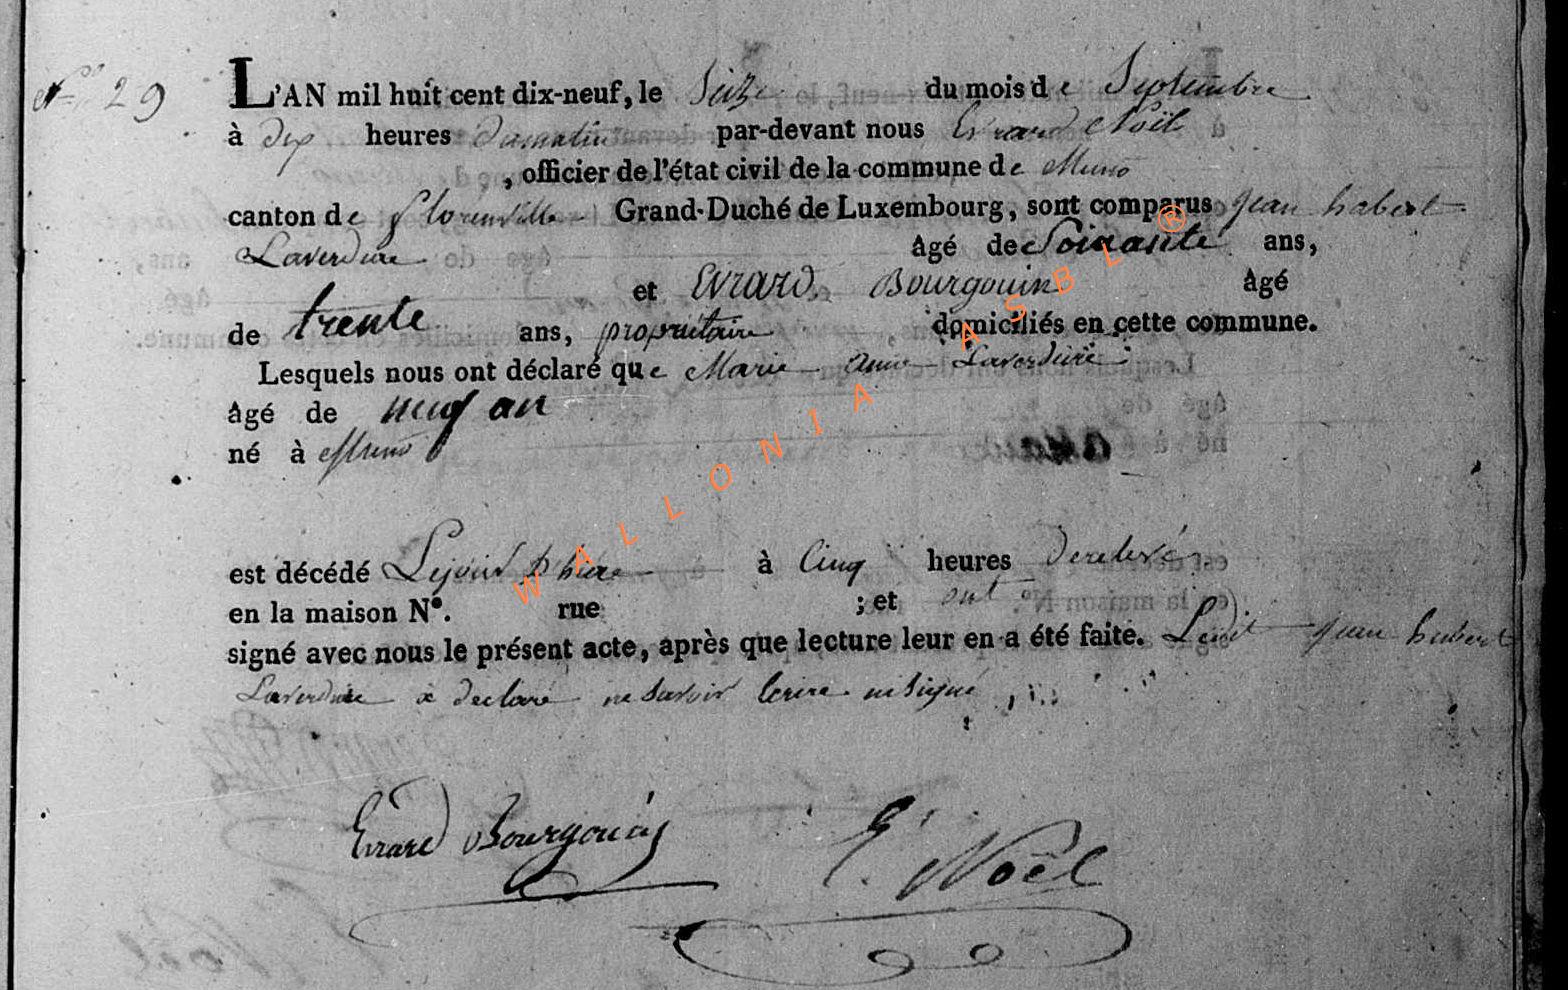 N° 29
L'AN mil huit cent dix-neuf, le Seize du mois de Septembre
à dix heures du matin par-devant nous Evrard Noël
, officier de l'état civil de la commune de Muno
canton de florenville Grand-Duché de Luxembourg, sont comparus Jean hubert
Laverdure âgé de Soixante ans,
et Evrard Bourgouin âgé
de trente ans, propriétaire domiciliés en cette commune.
Lesquels nous ont déclaré que Marie anne Laverdure
âgé de neuf an
né à Muno
est décédé Lejour D'hiere à Cinq heures
en la maison N°. rue ; et ont
signé avec nous le présent acte, après que lecture leur en a été faite. Ledit Jean hubert
Laverdure a declaré ne Savoir Ecrire ni Signé
Evrard Bourgouin E. Noël
WALLONIA ASBL ®